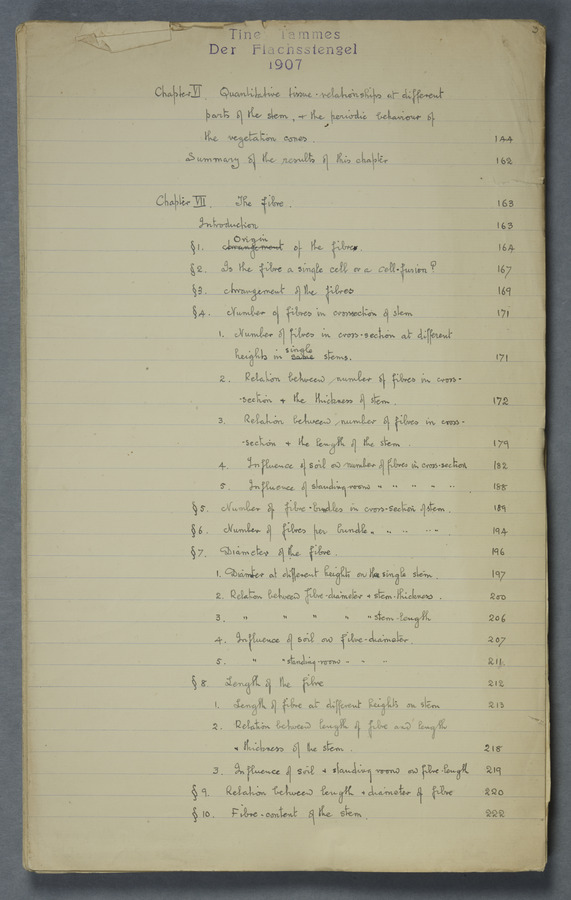 3
Tine Tammes
Der Flachsstengel
1907
Chapter VI. Quantitative tissue-relationships at different
parts of the stem, + the periodic behaviour of
the vegetation cones. 144
Summary of the results of this chapter 162
Chapter VII. The fibre. 163
Introduction 163
Origin
§1. Arrangement of the fibres. 164
§2. Is the fibre a single cell or a cell-fusion? 167
§3. Arrangement of the fibres 169
§4. Number of fibres in crossection of stem 171
1. Number of fibres in cross-section at different
single
heights in same stems. 171
2. Relation between number of fibres in cross-
-section + the thickness of stem. 172
3. Relation between number of fibres in cross-
-section + the length of the stem. 179
4. Influence of soil on number of fibres in cross-section 182
5. Influence of standing-room " " " " " 188
§5. Number of fibre-bundles in cross-section of stem. 189
§6. Number of fibres per bundle " " " " " 194
§7. Diameter of the fibre. 196
1. Diameter at different heights on the single stem. 197
2. Relation between fibre-diameter + stem-thickness. 200
3. " " " " " stem-length 206
4. Influence of soil on fibre-diameter. 207
5. " " standing-room " " " 211.
§8. Length of the fibre 212
1. Length of fibre at different heights on stem 213
2. Relation between length of fibre and length
+ thickness of the stem. 218
3. Influence of soil + standing room on fibre-length 219
§9. Relation between length + diameter of fibre 220
§10. Fibre-content of the stem. 222